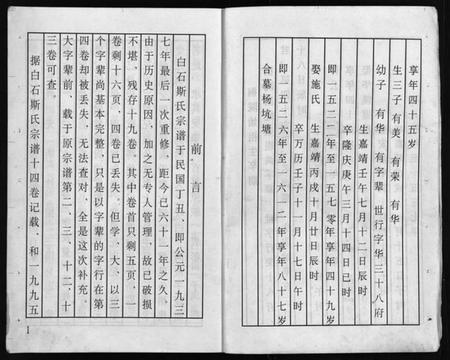 享年四十五岁
生三子 有美 有荣 有华
幼子 有华 有字辈 世行字华三十八府
生嘉靖壬午七月十二日辰时
卒隆庆庚午三月十四日已时
即一五二二年至一五七〇年享年四十九岁
娶施氏 生嘉靖丙戌十月廿日辰时
卒万历壬子十一月十七日午时
即一五二六年至一六一二年享年八十七岁
合墓杨坑塘
前言
白石斯氏宗谱于民国丁丑、即公元一九三
七年最后一次重修，距今已六十一年之久、
由于历史原因，加之无专人管理，故已破损
不堪，残存十九卷。其中卷首只剩五页，一
卷剩十六页，四卷已丢失。但学、大、以三
个字辈尚基本完整，只是以字辈的字行在第
十四卷却被丢失，无法查对，全是这次补充。
大字辈前，载于原宗谱第二、三、十二、十
三卷可查。
据白石斯氏宗谱十四卷记载，和一九九五
1